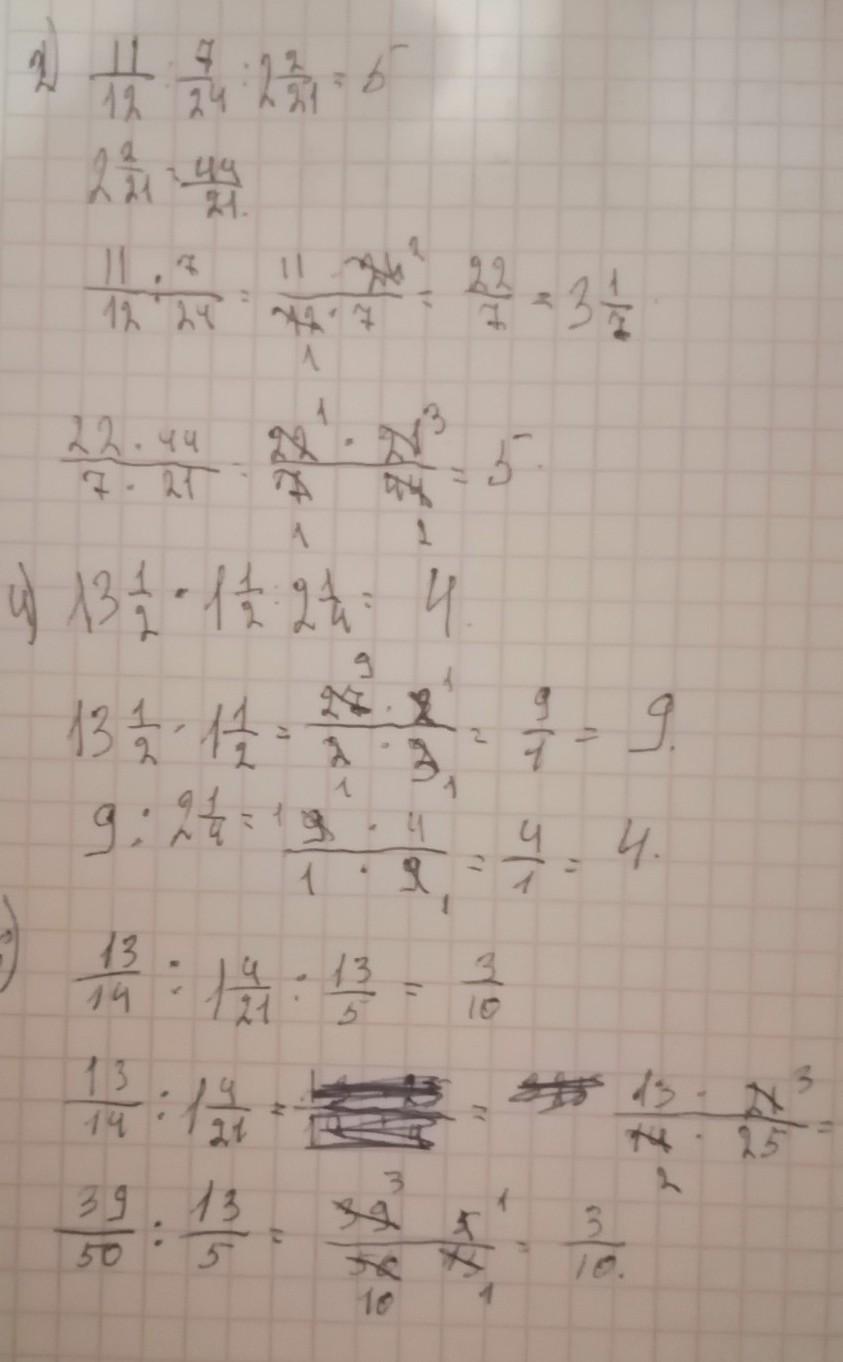 2) 11/12 : 7/24 : 2 2/21 = 5
2 2/21 = 44/21.
11 : 7 / 12 : 24 = 11 · 24 2 / 12 1 · 7 = 22/7 = 3 1/7.
22 · 44 / 7 · 21 = 22 1 · 21 3 / 7 1 44 2 = 5.
4) 13 1/2 · 1 1/2 : 2 1/4 = 4.
13 1/2 · 1 1/2 = 27 9 · 2 1 / 2 1 · 3 1 = 9/1 = 9.
9 : 2 1/4 = 1 9 · 4 / 1 · 9 1 = 4/1 = 4.
) 13/14 : 1 4/21 : 13/5 = 3/10
13/14 : 1 4/21 = = 13 · 21 3 / 14 2 · 25 =
39/50 : 13/5 = 39 3 5 1 / 50 10 13 1 = 3/10.